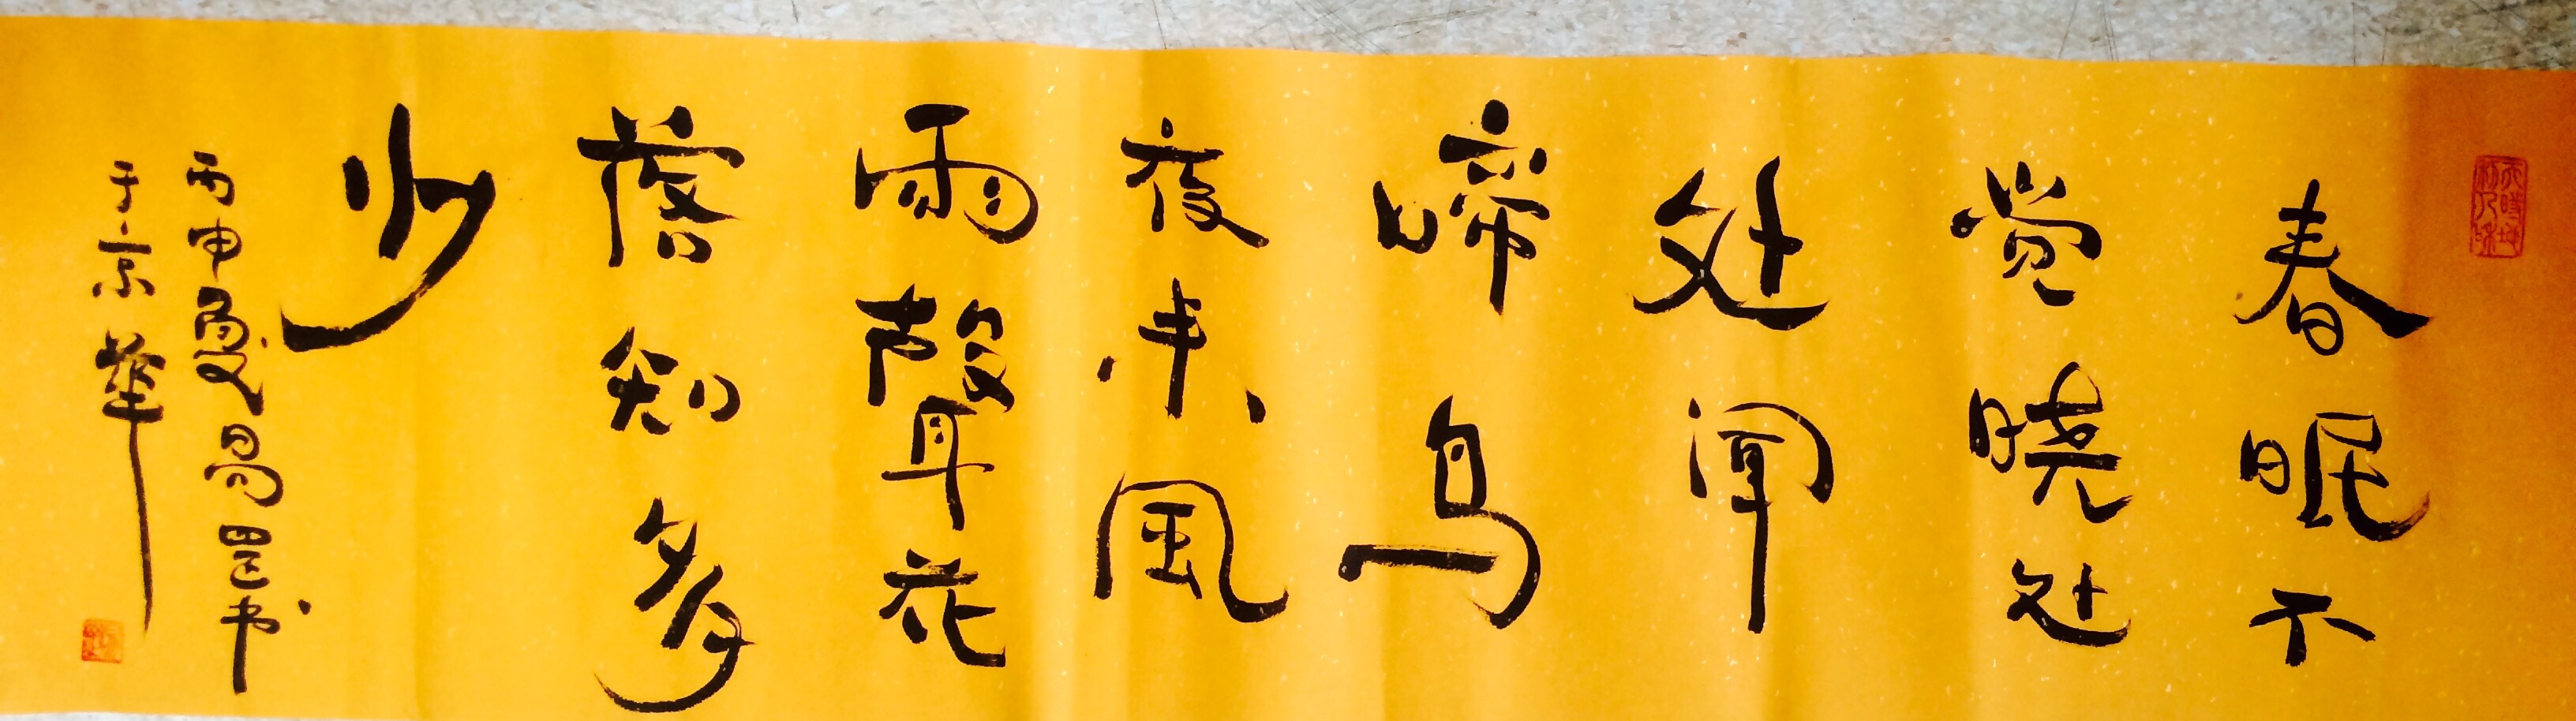 春眠不
觉晓处
处闻
啼鸟
夜来风
雨聲花
落知多
少
丙申夏易罡书
于京華